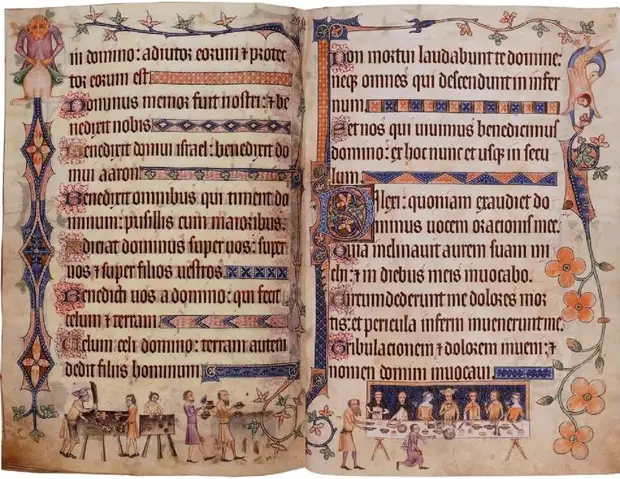 in domino: adiutor eorum ⁊ protec
tor eorum est
Dominus memor fuit nostri: ⁊ be
nedixit nobis
Benedixit domui israel: benedixit do
mui aaron
Benedixit omnibus qui timent do
minum: pusillis cum maioribus.
Adiciat dominus super uos: super
uos ⁊ super filios uestros
Benedicti uos a domino: qui fecit
celum ⁊ terram
Celum celi domino: terram autem
dedit filiis hominum
Non mortui laudabunt te domine:
neque omnes qui descendunt in infer
num
Set nos qui uiuimus benedicimus
domino: ex hoc nunc et usque in secu
lum
Dilexi: quoniam exaudiet do
minus uocem orationis mee.
Quia inclinauit aurem suam mi
chi: ⁊ in diebus meis inuocabo.
Circumdederunt me dolores mor
tis: et pericula inferni inuenerunt me.
Tribulacionem ⁊ dolorem inueni: ⁊
nomen domini inuocaui